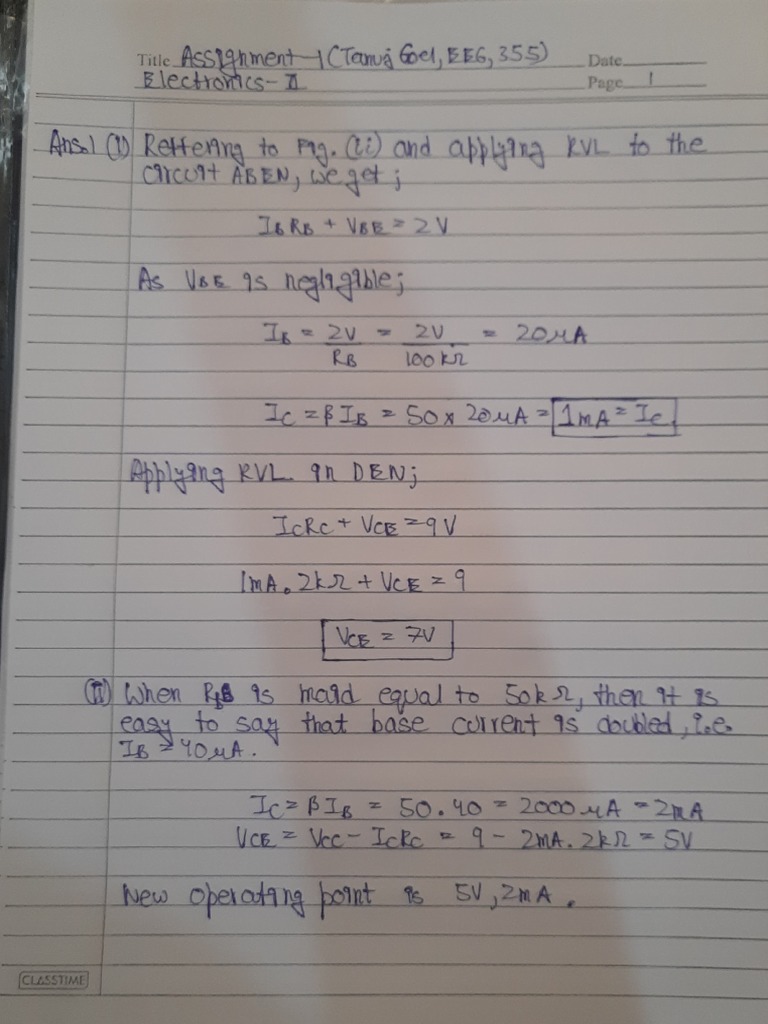 Title Assignment-1 (Tanuj Goel, EEG, 355) Date
Electronics-II Page 1
Ans.1 (i) Reffering to Fig. (ii) and applying KVL to the
circuit ABEN, we get;
IBRB + VBE = 2V
As VBE is negligible;
IB = 2V/RB = 2V/100kΩ = 20μA
IC = βIB = 50 × 20μA = 1mA = Ic.
Applying KVL in DEN;
ICRC + VCE = 9V
1mA. 2kΩ + VCE = 9
VCE = 7V
(ii) When RB is maid equal to 50kΩ, then it is
easy to say that base current is doubled, i.e.
IB = 40μA.
IC = βIB = 50.40 = 2000μA = 2mA
VCE = VCC - ICRC = 9 - 2mA. 2kΩ = 5V
New operating point is 5V, 2mA.
CLASSTIME